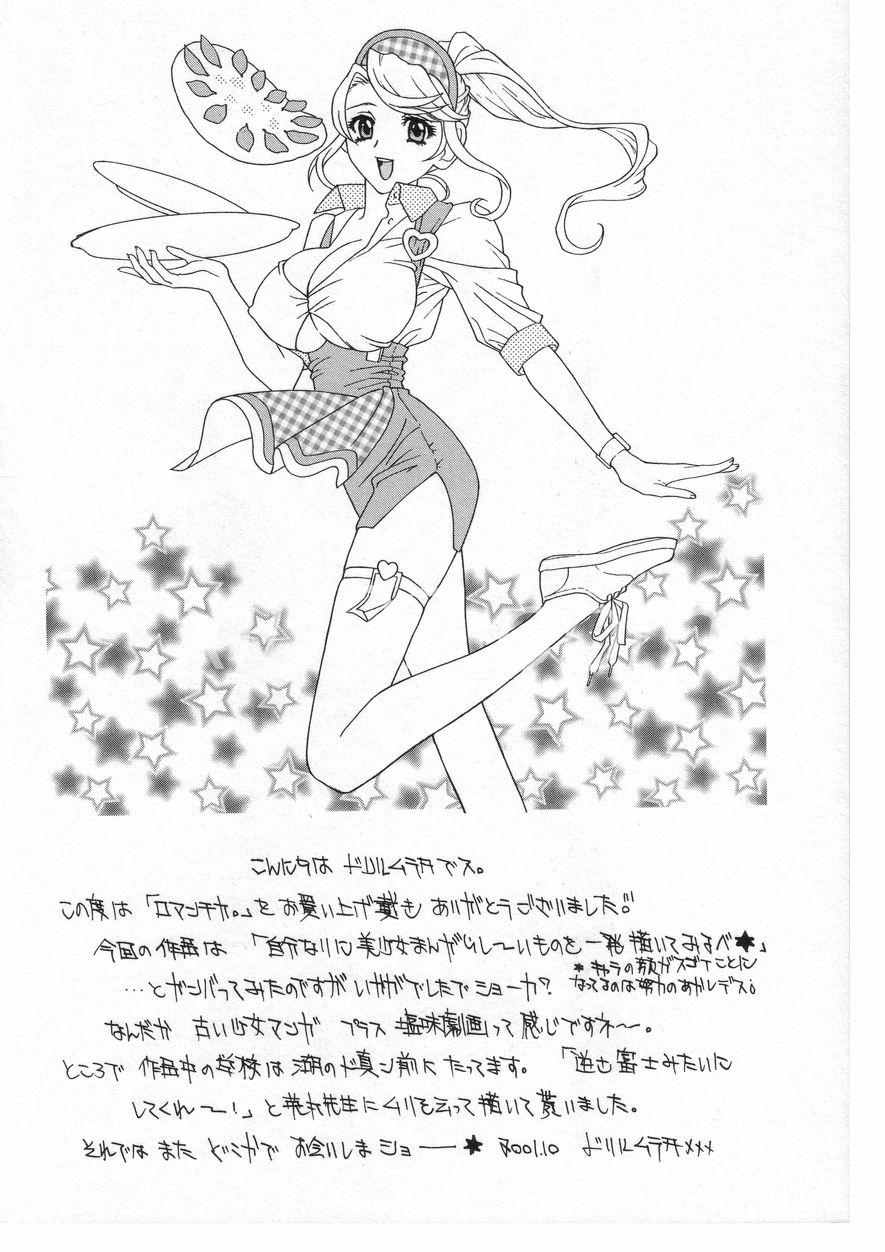 こんにちは ドリルムラタでス。
この度は「ロマンチカ。」をお買い上げ戴き ありがとうございました!!
今回の作品は 「自分なりに美少女まんがらし〜いものを一発描いてみるべ★」
＊キャラの顔がスゴイことに
なってるのは努力のあかしデス。
…とガンバってみたのですが いかがでしたでショーカ?
なんだか 古い少女マンガ プラス 塩味劇画って感じですネ〜。
ところで 作品中の学校は 湖のド真ン前にたってます。「逆さ富士みたいに
してくれ〜!」と荒木先生にムリを云って描いて貰いました。
それでは また どこかで お会いしまショー──★ 2001.10 ドリルムラタ×××